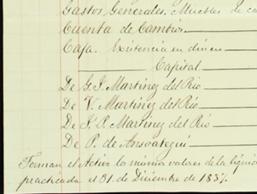 Gastos Generales. Muebles de ca
Cuenta de Cambio
Caja. Existencia en dinero
Capital
De G. J. Martinez del Rio
De V. Martinez del Rio
De J. P. Martinez del Rio
De P. de Ansoategui
Forman el Activo lo mismo valores de la liquid
practicada el 31 de Diciembre de 1837.